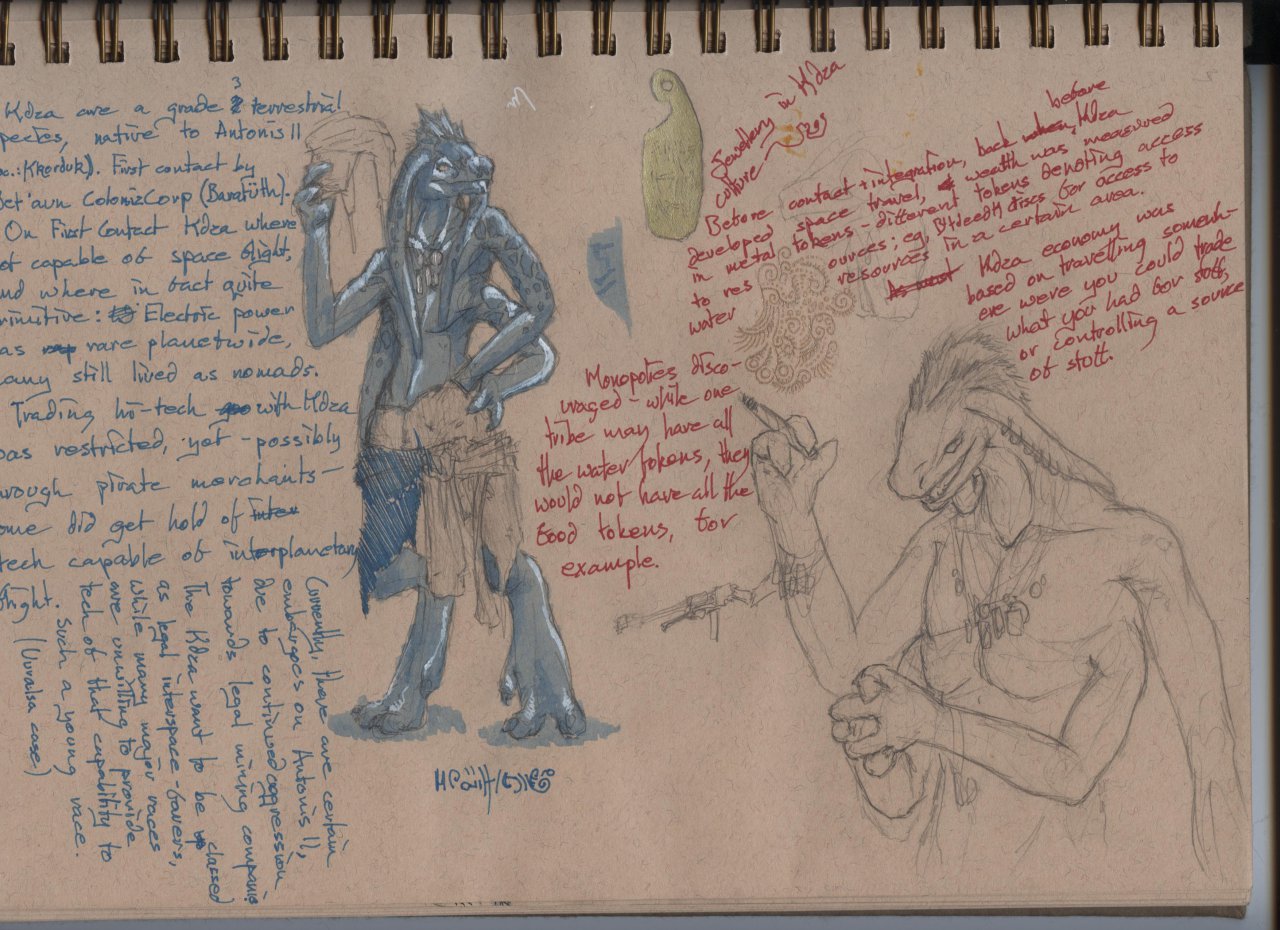 Kdza are a grade 3 terrestrial
pecies, native to Antonis II
oc.: Kkorduk). First contact by
Jet'aun ColonizCorp (Baratüth).
On First Contact Kdza where
ot capable of space flight,
and where in fact quite
rimitive: Electric power
as rare planetwide,
many still lived as nomads.
Trading hi-tech with Kdza
was restricted, yet - possibly
hrough pirate merchants -
ome did get hold of
tech capable of interplanetary
flight.
Such a young race.
(Uvralsa case)
Currently, there are certain
embargoes on Antonis II,
due to continued aggression
towards legal mining companies
The Kdza want to be classed
as legal interspace-farers,
while many mayor races
are unwilling to provide
tech of that capability to
Jewellery in Kdza
culture
Before contact + integration, back before Kdza
developed space travel, wealth was measured
in metal tokens - different tokens denoting access
to resources; eg, discs for access to
water resources in a certain area.
Kdza economy was
based on travelling somewh-
ere were you could trade
what you had for stuff,
or controlling a source
of stuff.
Monopolies disco-
uraged - while one
tribe may have all
the water tokens, they
would not have all the
food tokens, for
example.